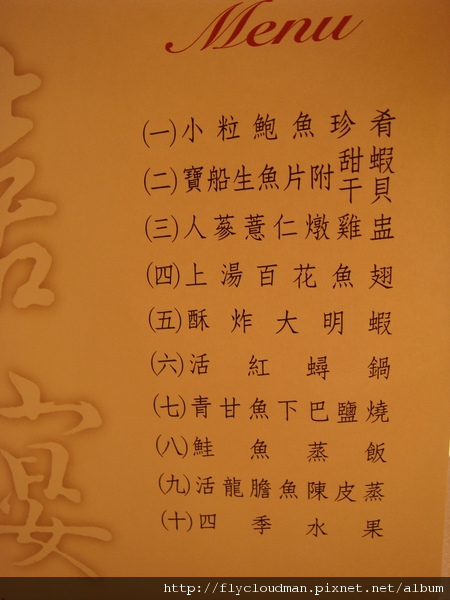 Menu
㈠小粒鮑魚珍肴
㈡寶船生魚片附甜蝦干貝
㈢人蔘薏仁燉雞盅
㈣上湯百花魚翅
㈤酥炸大明蝦
㈥活紅蟳鍋
㈦青甘魚下巴鹽燒
㈧鮭魚蒸飯
㈨活龍膽魚陳皮蒸
㈩四季水果
喜宴
http://flycloudman.pixnet.net/album